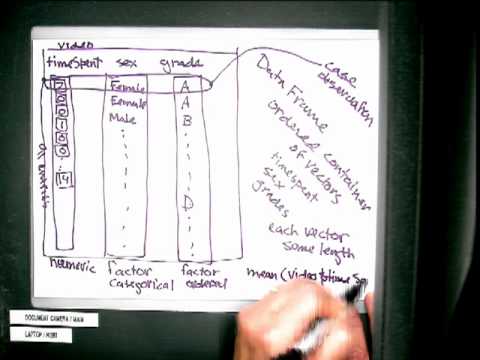 video
timeSpent sex grade
2 Female A
0 Female A
0 Male B
1
0
0
14
D
numeric factor factor
Categorical ordered
case
observation
Data Frame
ordered container
of vectors
timespent
sex
grades
each vector
same length
mean(video$timeSp
DOCUMENT CAMERA / MAIN
LAPTOP / HDMI